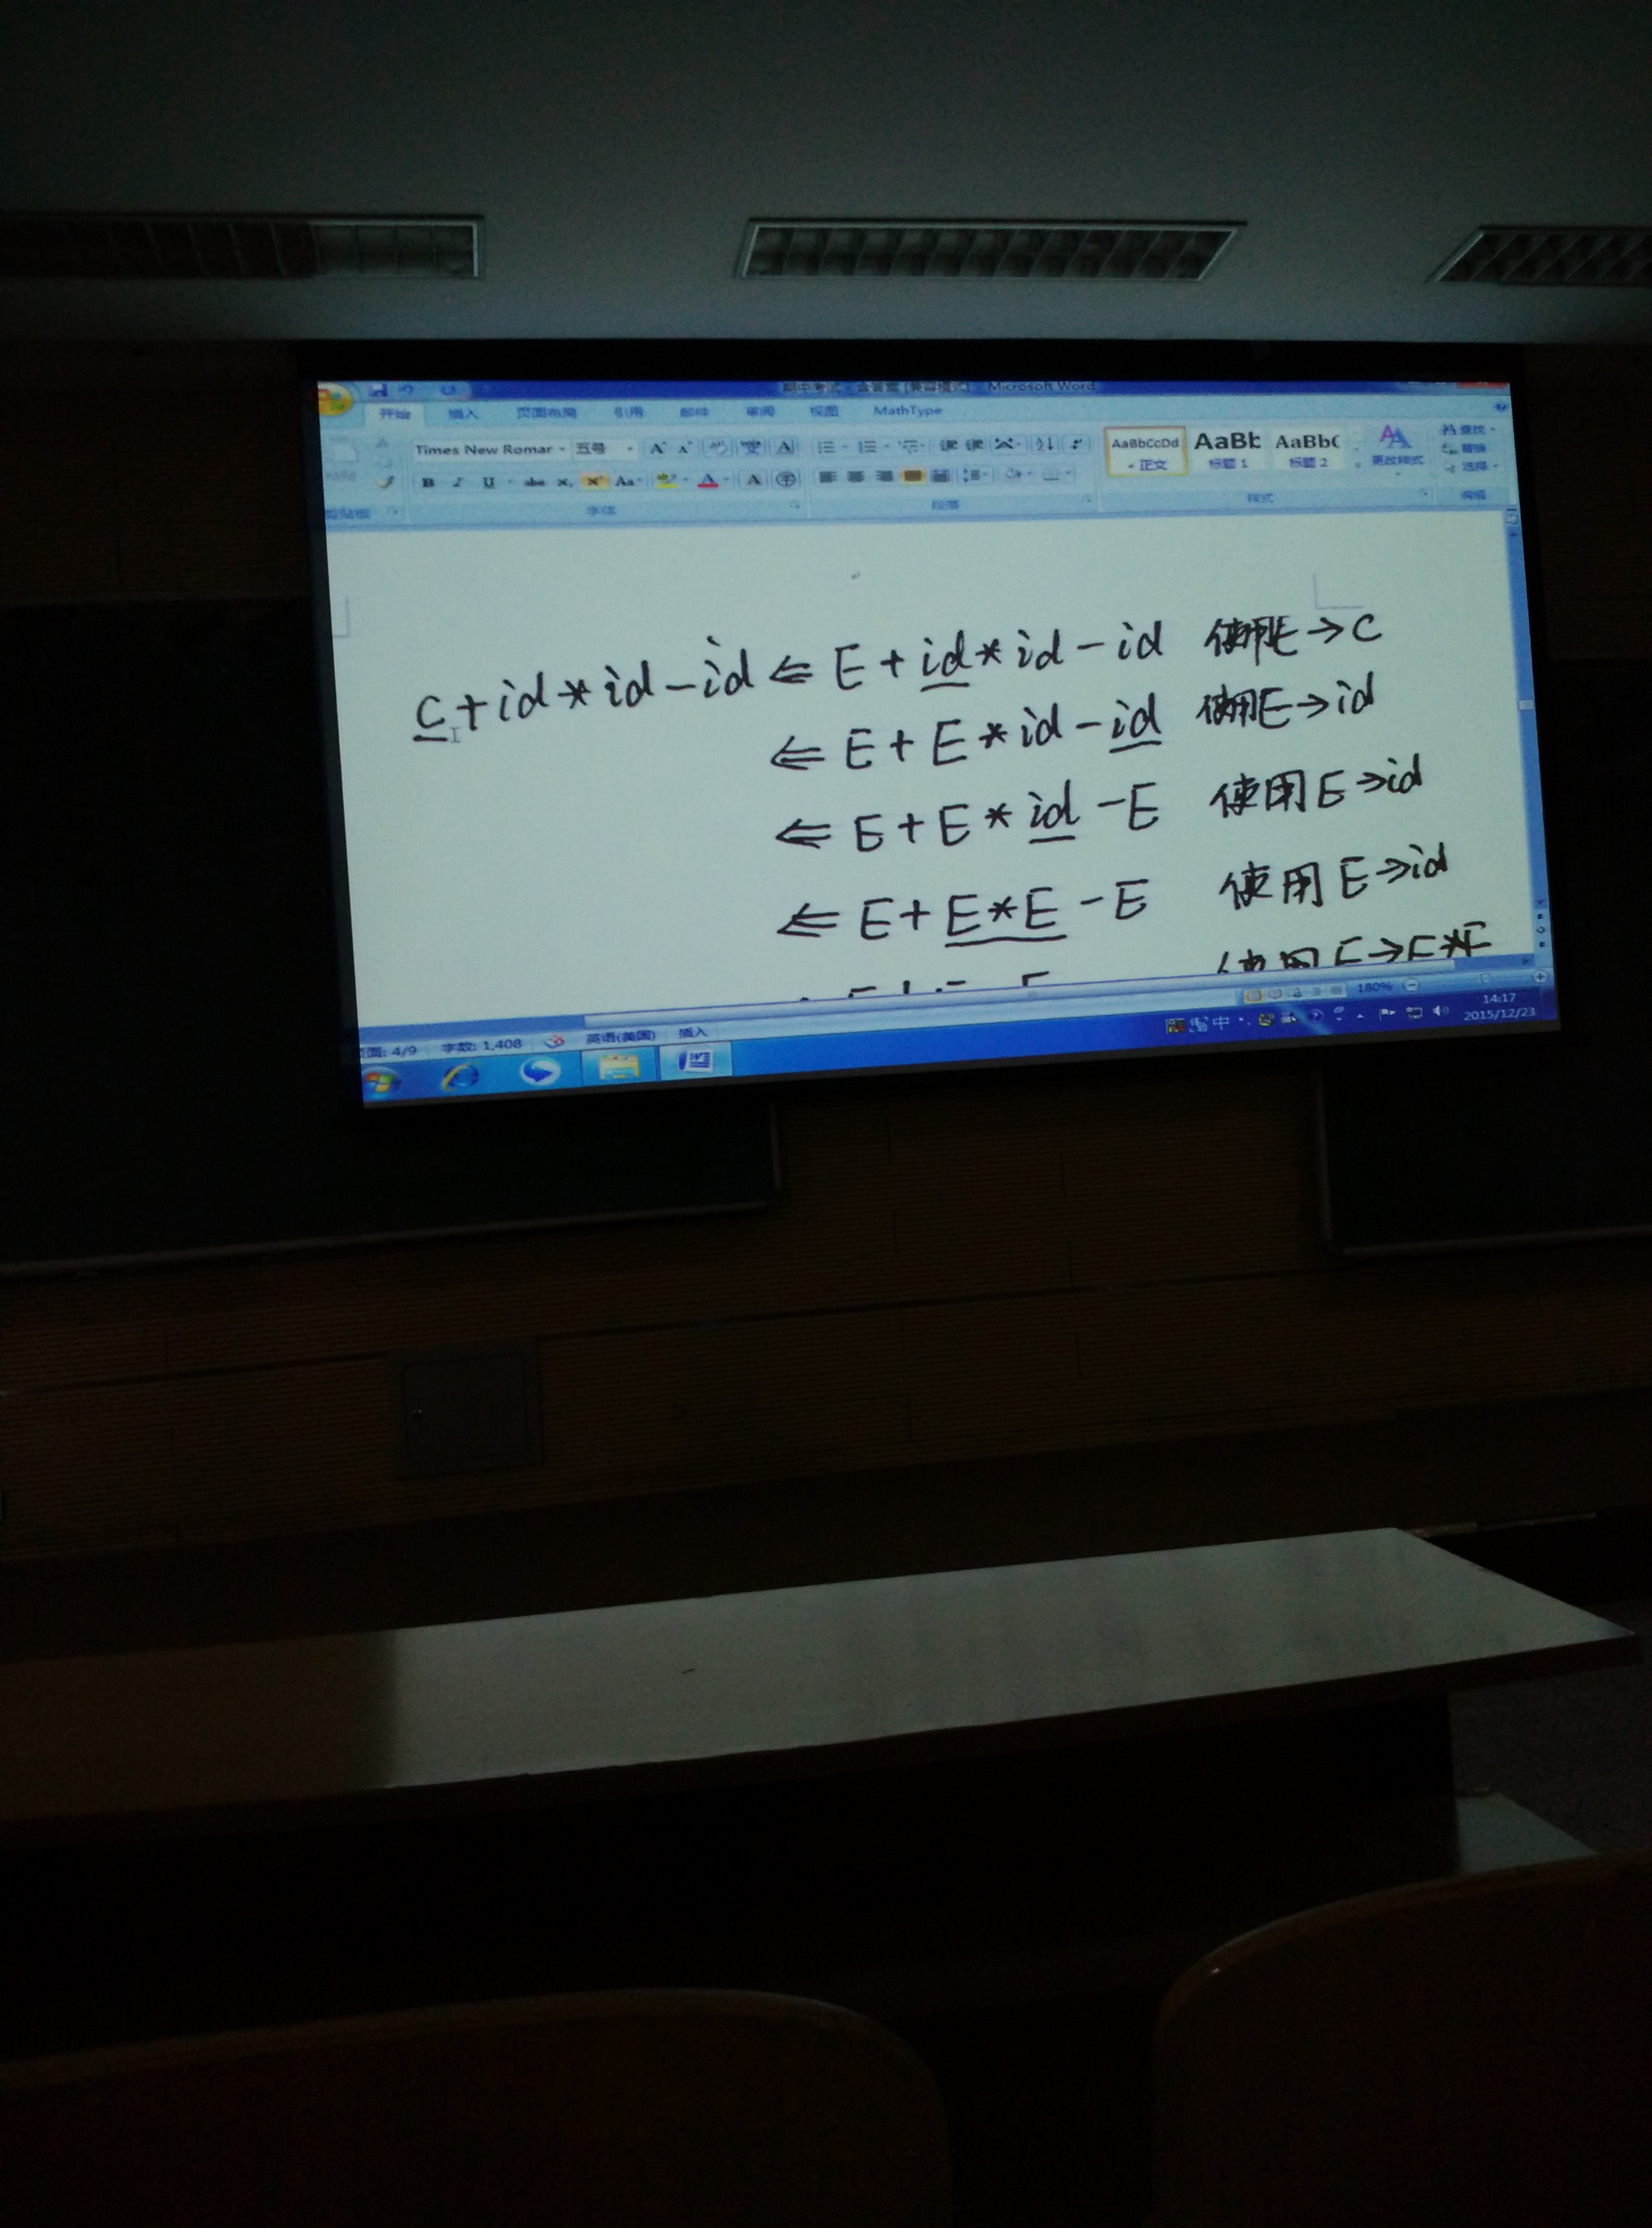 期中考试 - 含答案 [兼容模式] - Microsoft Word
开始 插入 页面布局 引用 邮件 审阅 视图 MathType
Times New Romar 五号
AaBbCcDd AaBb AaBbC
正文 标题 1 标题 2 更改样式
查找
替换
选择
剪贴板 字体 段落 样式 编辑
c+id*id-id ⇐ E+id*id-id 使用E→c
⇐ E+E*id-id 使用E→id
⇐ E+E*id-E 使用E→id
⇐ E+E*E-E 使用E→id
使用E→E*E
页面: 4/9 字数: 1,408 英语(美国) 插入 180%
中
14:17
2015/12/23